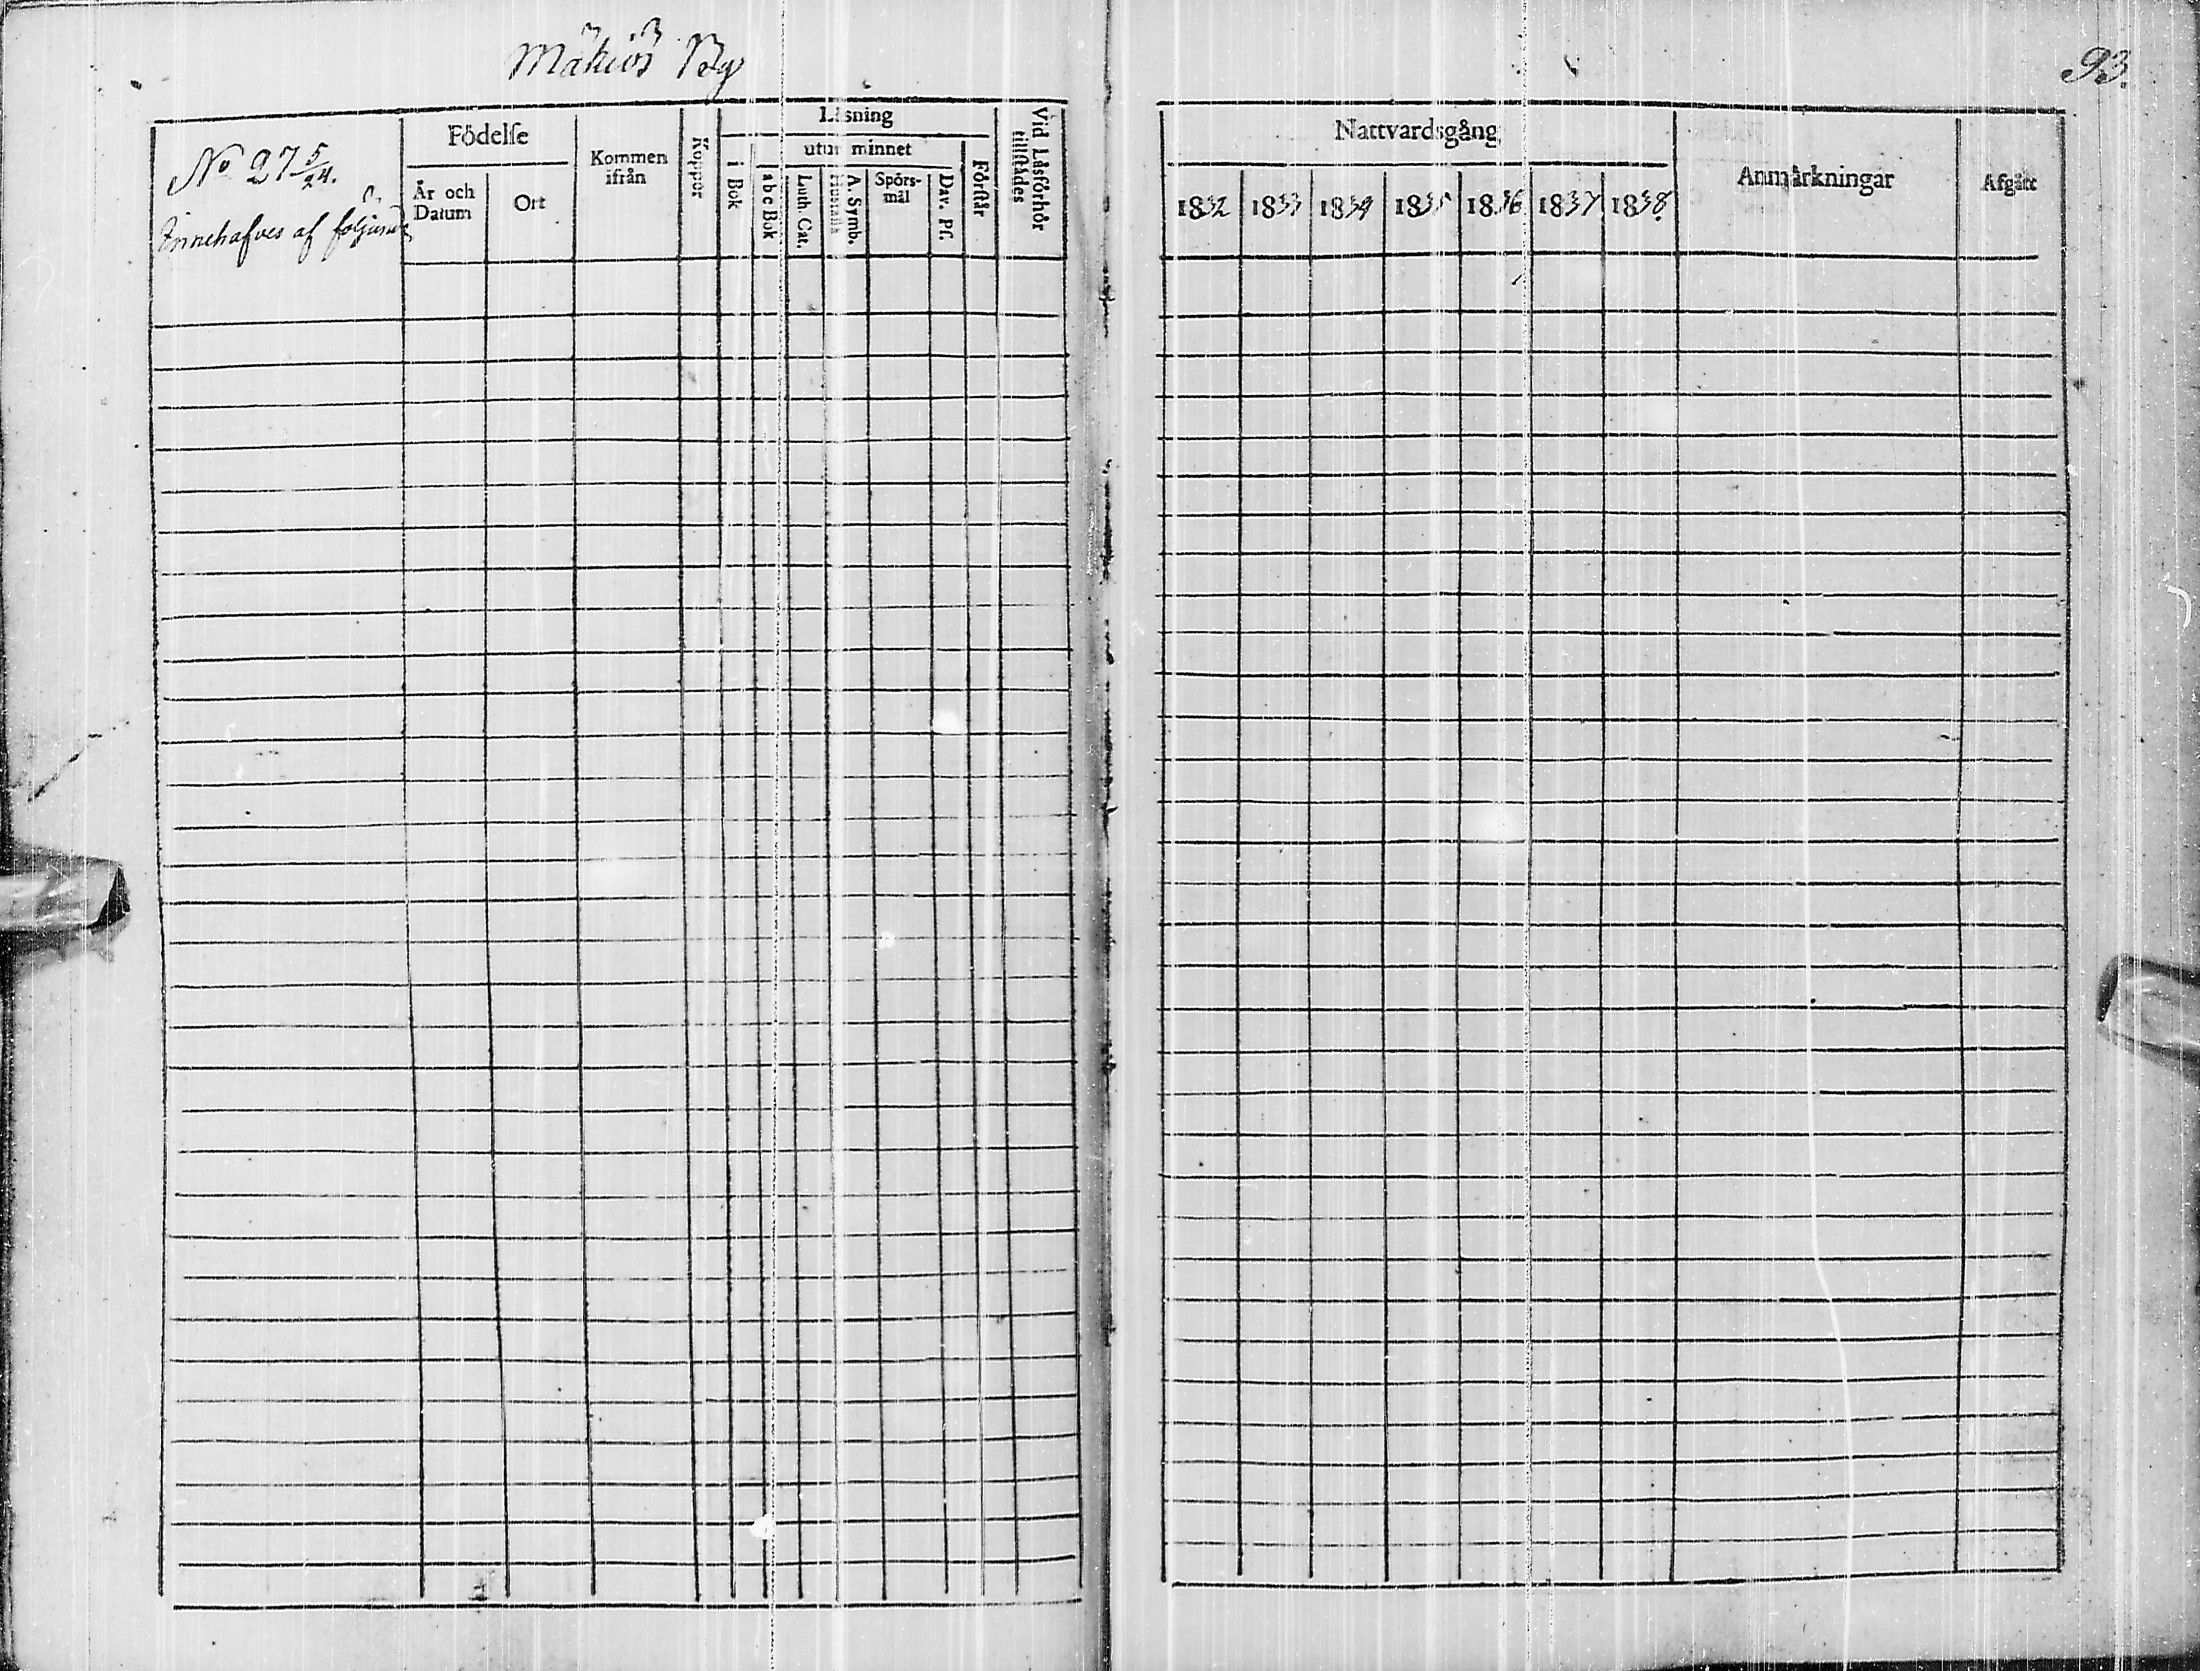 Mäkiös By
93.
No 27 5/24.
Innehafves af följande
Födelſe
År och Datum
Ort
Kommen ifrån
Koppor
Läsning
i Bok
utur minnet
a b c Bok
Luth. Cat.
Hustafla
A. Symb.
Spörs-mål
Dav. Pſ.
Förſtår
Vid Läsförhör tillſtådes
Nattvardsgång
1832 1833 1834 1835 1836 1837 1838
Anmärkningar
Afgått